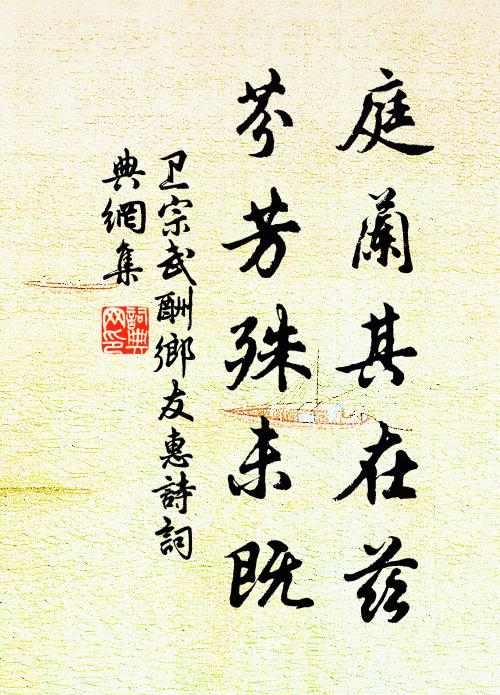 庭蘭其在茲
芬芳殊未既
卫宗武酬鄉友惠詩詞
典網集
詞典
网印